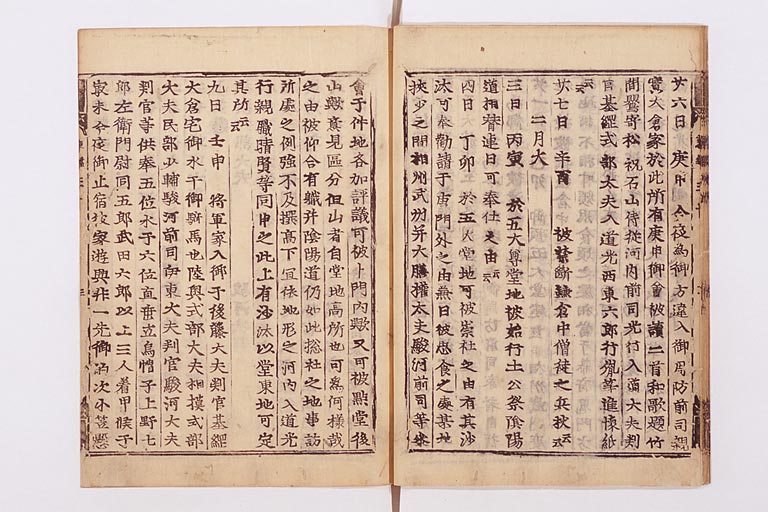 廿六日 庚申 今夜為御方違入御周防前司親
實大倉家於此所有庚申御會被講二首和歌題竹
間鸎寄松祝石山侍從河内前司光行入道大夫判
官基綱式部大夫入道光西東六郎行胤等進懷紙
云云
廿七日辛酉 被禁斷鎌倉中僧徒之兵杖云云
二月大
三日 丙寅 於五大尊堂地被始行土公祭陰陽
道相替連日可奉仕之由云云
四日 丁卯 於五大堂地可被崇社之由有其沙
汰可奉勸請于東門外之由兼日被思食之處某地
狹少之間相州武州幷大膳權大夫駿河前司等參
會于件地各加評議可被卜門内歟又可被點堂後
山歟意見區分但山者自堂地高所也可為何樣哉
之由被仰合有職幷陰陽道仍如此捴社之地事訪
所處之例強不及撰高下宜依地形之河内入道光
行親職晴賢等同申之此上有沙汰以堂東地可定
其所云云
九日 壬申 將軍家入御于後藤大夫判官基綱
大倉宅御水干御騎馬也陸奥式部大夫相摸式部
大夫民部少輔駿河前司
大夫判官駿河大夫
判官等供奉五位水干六位直垂立烏帽子上野七
郎左衛門尉同五郎武田六郎以上三人着甲候于
冣末今夜御止宿彼家遊興非一先御